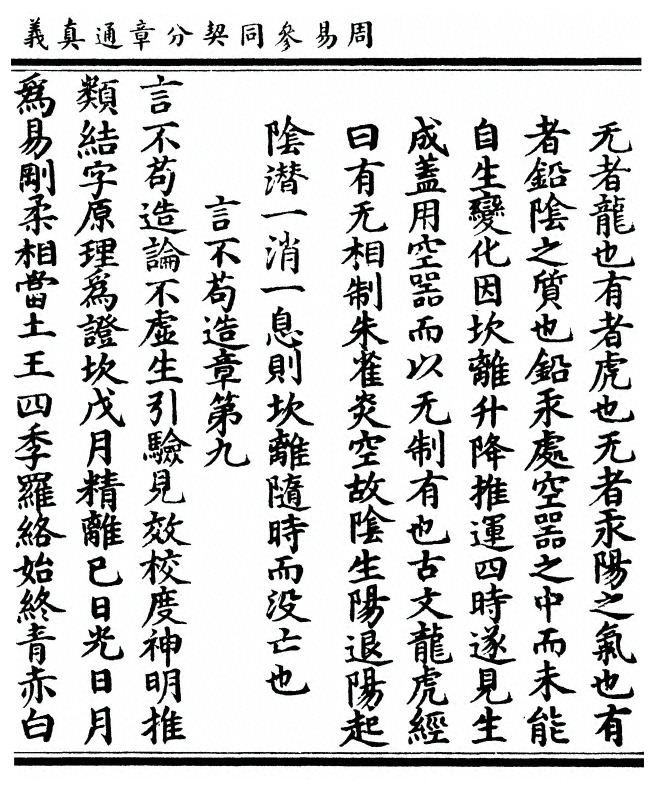 周易參同契分章通真義
无者龍也有者虎也无者汞陽之氣也有
者鉛陰之質也鉛汞處空器之中而未能
自生變化因坎離升降推運四時遂見生
成蓋用空器而以无制有也古文龍虎經
曰有无相制朱雀炎空故陰生陽退陽起
陰潛一消一息則坎離隨時而没亡也
言不苟造章第九
言不苟造論不虛生引驗見效校度神明推
類結字原理爲證坎戊月精離己日光日月
爲易剛柔相當土王四季羅絡始終青赤白